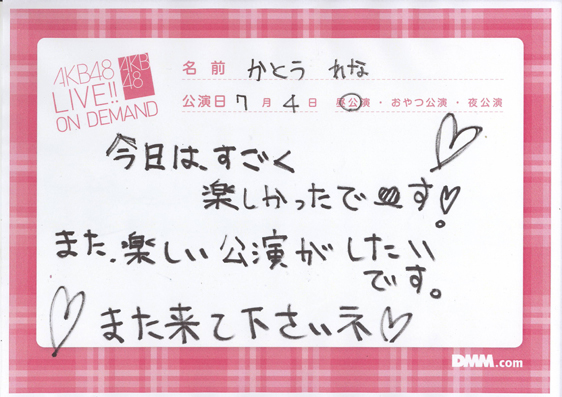 AKB48
LIVE!!
ON DEMAND
AKB
48
名前 かとう れな
公演日 7月4日 昼公演・おやつ公演・夜公演
今日は、すごく
楽しかったです!
また、楽しい公演がしたい
です。
また来て下さいネ
DMM.com